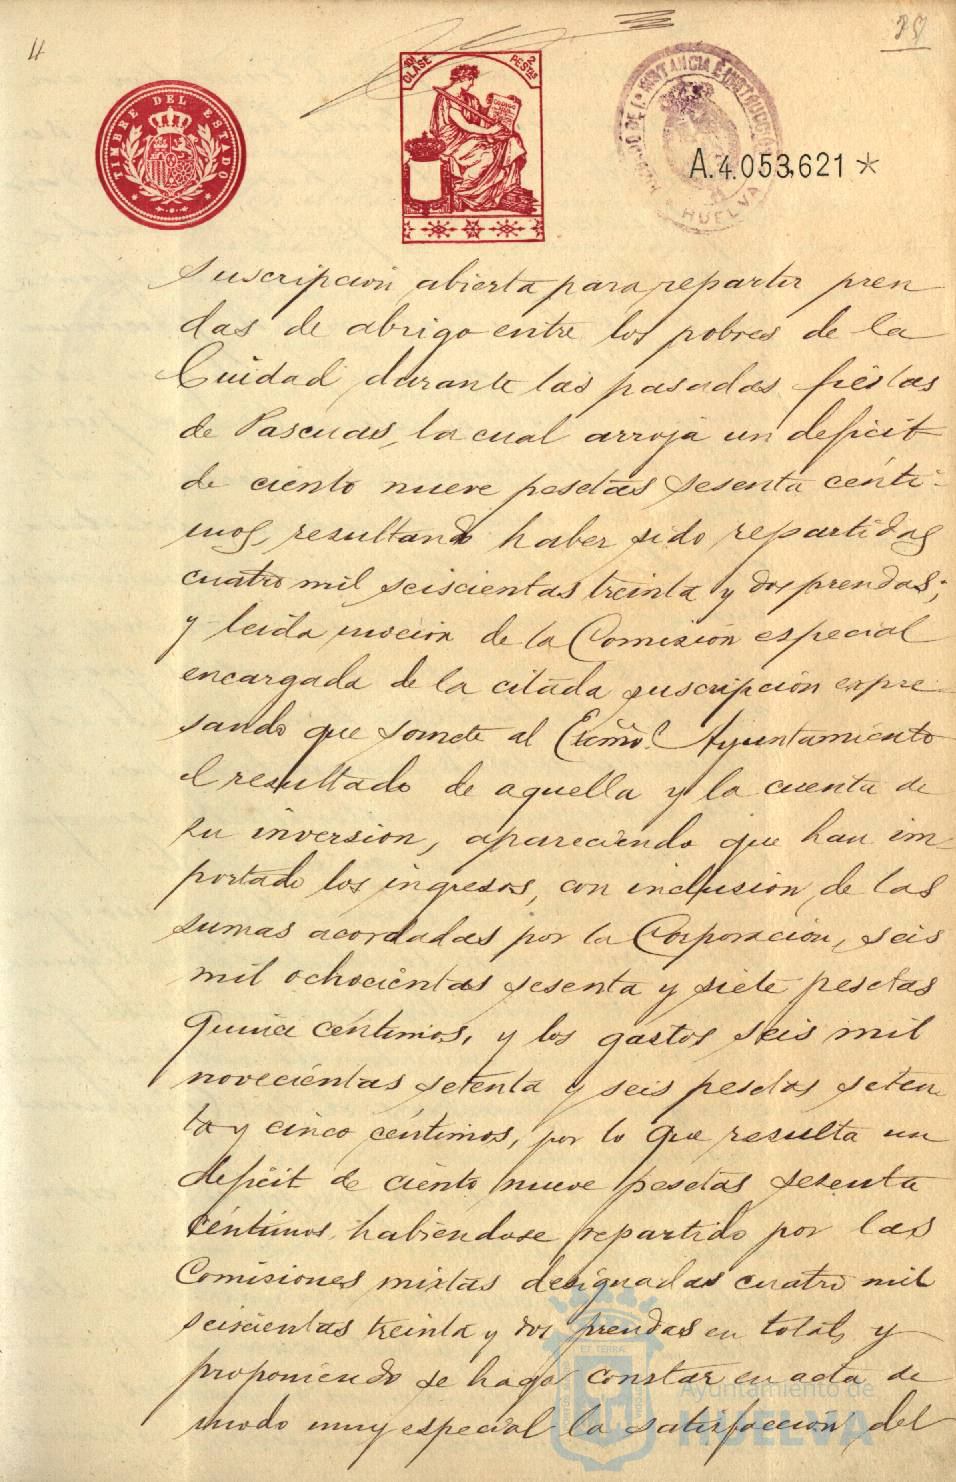 4
TIMBRE DEL ESTADO
CLASE
2
PESTAS
HUELVA
A.4.053,621 *
suscripción abierta para repartir pren
das de abrigo entre los pobres de la
Cuidad durante las pasadas fiestas
de Pascuas, la cual arroja un deficit
de ciento nueve pesetas sesenta cénti-
mos, resultando haber sido repartidas
cuatro mil seiscientas treinta y dos prendas;
y leída moción de la Comisión especial
encargada de la citada suscripción expre-
sando que somete al Excmo. Ayuntamiento
el resultado de aquella y la cuenta de
su inversion, apareciendo que han im-
portado los ingresos, con inclusion de las
sumas acordadas por la Corporación, seis
mil ochocientas sesenta y siete pesetas
quince céntimos, y los gastos seis mil
novecientas setenta y seis pesetas seten
ta y cinco céntimos, por lo que resulta un
deficit de ciento nueve pesetas sesenta
céntimos, habiendose repartido por las
Comisiones mixtas designadas cuatro mil
seiscientas treinta y dos prendas en total, y
proponiendo se haga constar en acta de
modo muy especial la satisfacción del
Ayuntamiento de
HUELVA